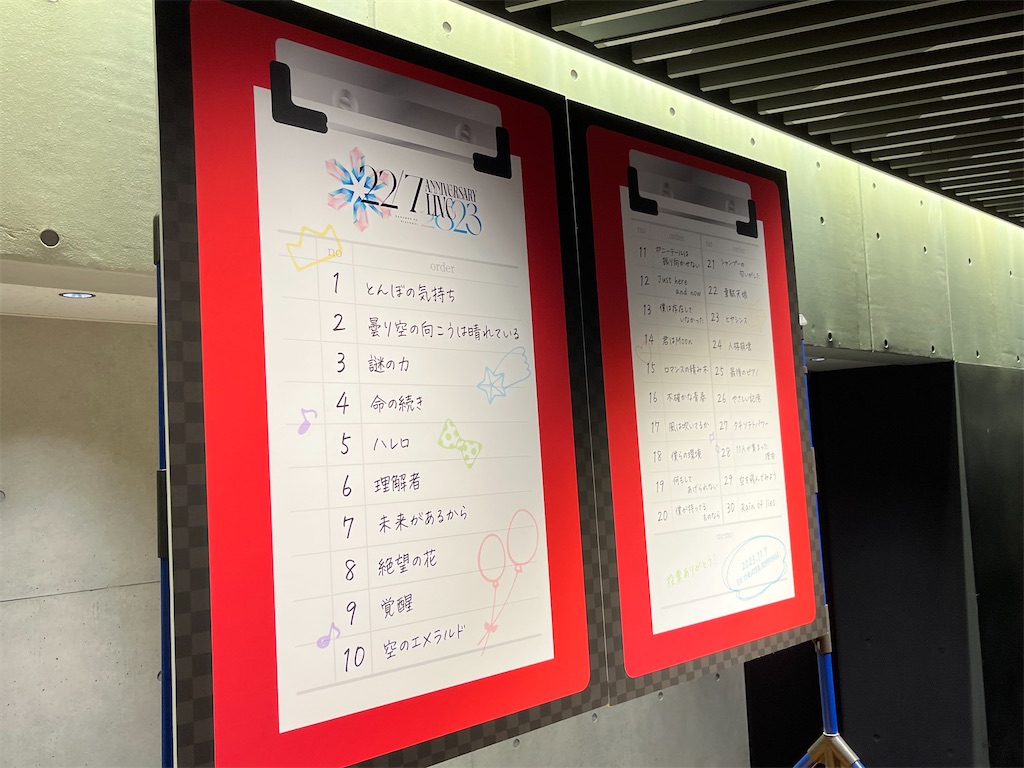 22/7 ANNIVERSARY
LIVE 2023
no order
1 とんぼの気持ち
2 曇り空の向こうは晴れている
3 謎の力
4 命の続き
5 ハレロ
6 理解者
7 未来があるから
8 絶望の花
9 覚醒
10 空のエメラルド
no order no order
11 ポニーテールは
振り向かせない
12 Just here
and now
13 僕は存在して
いなかった
14 君はMoon
15 ロマンスの積み木
16 不確かな青春
17 風は吹いてるか
18 僕らの環境
19 何もして
あげられない
20 僕が持ってる
ものなら
21 シャンプーの
匂いがした
22 循環バス
23 ヒヤシンス
24 人格崩壊
25 最後のピアノ
26 やさしい記憶
27 タチツテトパワー
28 11人が集まった
理由
29 空を飛んでみよう
30 Rain of lies
投票ありがとう!
2023.11.7